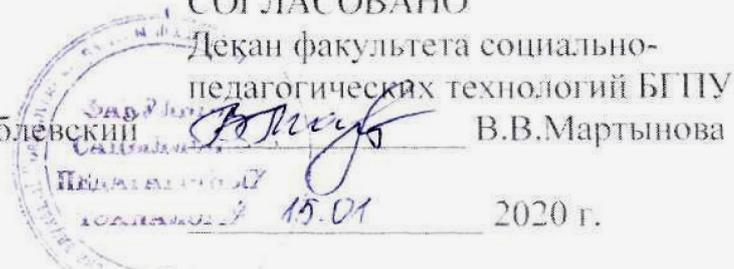 СОГЛАСОВАНО
Декан факультета социально-
педагогических технологий БГПУ
блевский В.В.Мартынова
15.01 2020 г.